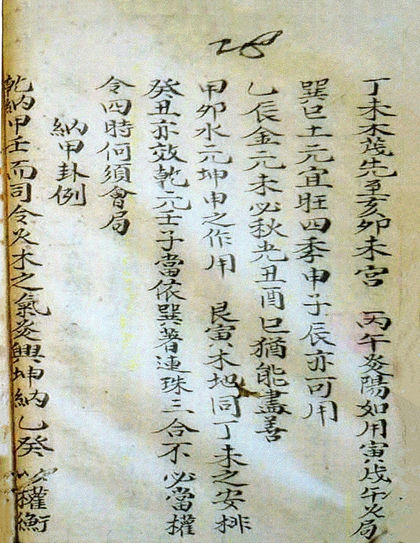 丁未木茂先尋亥卯未宮 丙午炎陽如用寅戌午火局
巽巳土元宜旺四季申子辰亦可用
乙辰金元未必秋光丑酉巳猶能盡善
甲卯水元坤申之作用 艮寅木地同丁未之安排
癸丑亦效乾元壬子當依巽著連珠三合不必當權
令四時何須會局
納甲卦例
乾納甲壬而司令火木之氣炎興坤納乙癸以權衡